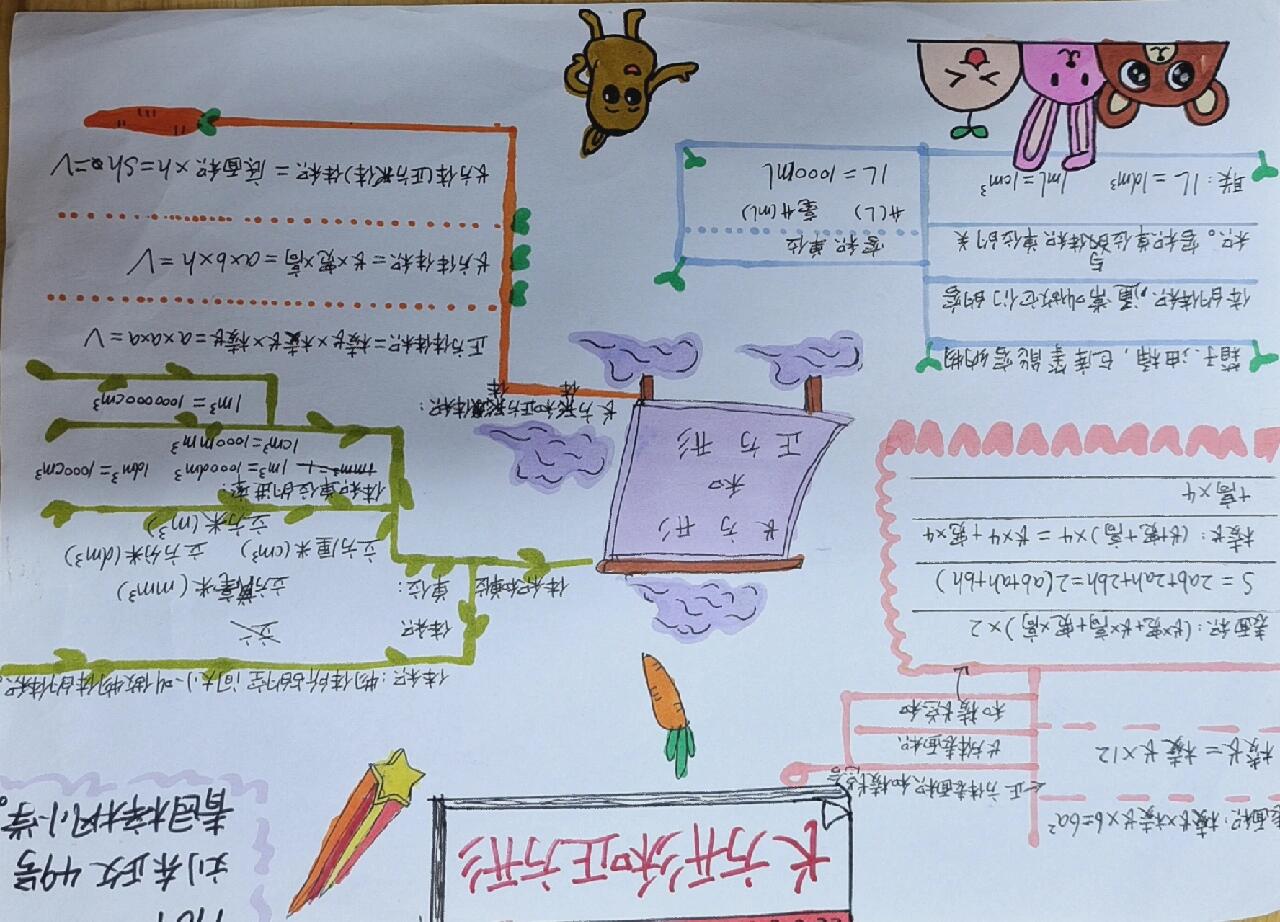 长方形和正方形
49号
小学。
表面积:棱长×棱长×6=6a²
棱长=棱长×12
←正方体表面积和棱长总和
长方体表面积
和棱长总和
表面积:(长×宽+长×高+宽×高)×2
S=2ab+2ah+2bh=2(ab+ah+bh)
棱长:(长+宽+高)×4=长×4+宽×4
+高×4
体积:物体所占的空间大小叫做物体的体积。
体积
体积和单位
单位:
立方毫米(mm³)
立方厘米(cm³) 立方分米(dm³)
立方米(m³)
体积单位的进率:
1m³=1000dm³ 1dm³=1000cm³
1cm³=1000mm³
1m³=1000000cm³
长方形
和
正方形
长方体和正方体体积:
正方体体积=棱长×棱长×棱长=a×a×a=V
长方体体积=长×宽×高=a×b×h=V
长方体(正方体)体积=底面积×h=Sh=V
箱子、油桶,仓库等能容纳物
体的体积,通常叫做它们的容
积。容积单位与体积单位的关
联:1L=1dm³ 1ml=1cm³
容积单位
升(L) 毫升(ml)
1L=1000ml